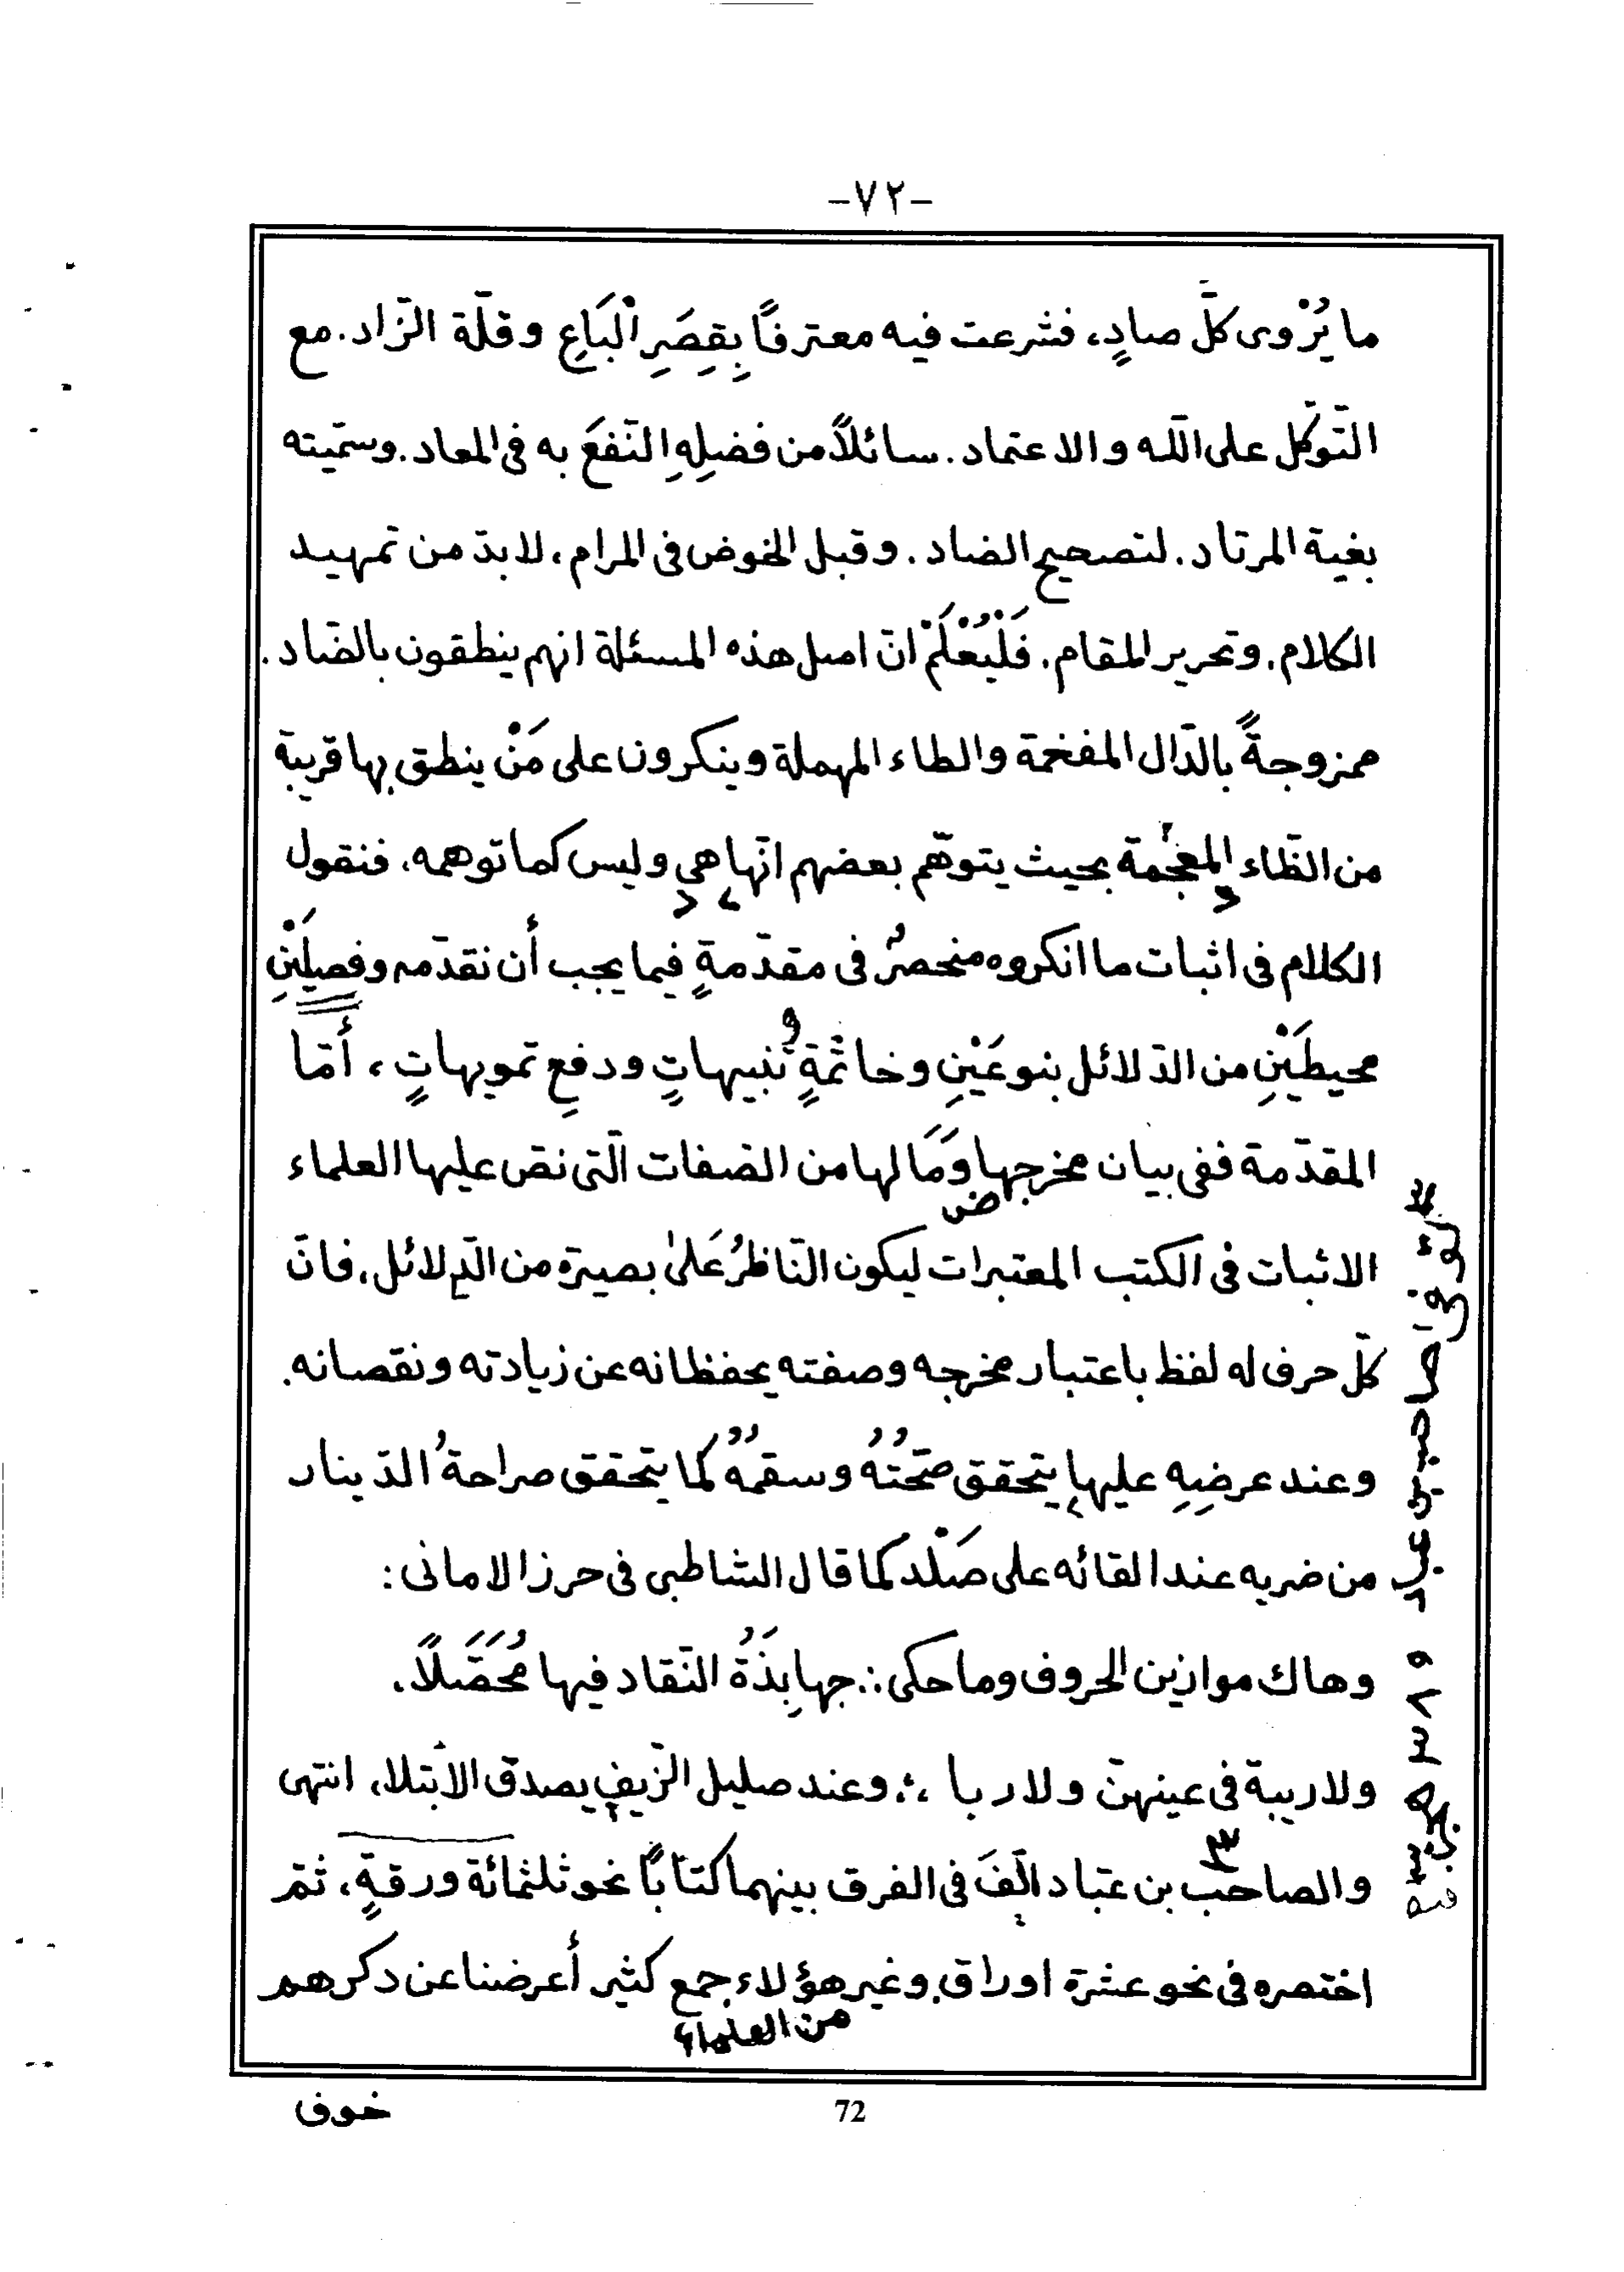 -٧٢-
ما يُرْوى كلَّ صادٍ، فشرعت فيه معترفًا بِقِصَرِ الْبَاعِ وقلّة الزّاد. مع
التّوكّل على اللّه والاعتماد. سائلاً من فضلِهِ النّفعَ به فى المعاد. وسمّيته
بغية المرتاد. لتصحيح الضاد. وقبل الخوض فى المرام، لابدّ من تمهيد
الكلام. وتحرير المقام. فَلْيُعْلَمْ انّ اصل هذه المسئلة انهم ينطقون بالضّاد.
ممزوجةً بالدّال المفخمة والطاء المهملة وينكرون على مَنْ ينطق بها قريبة
من الظّاء المعجمة بحيث يتوهّم بعضهم انّها هى وليس كما توهمه. فنقول
الكلام فى اثبات ما انكروه منحصرٌ فى مقدّمةٍ فيما يجب أن نقدّمه وفصلَيْنِ
محيطَيْنِ من الدّلائل بنوعَيْنِ وخاتمةٍ و تنبيهاتٍ ودفعِ تمويهاتٍ، أمّا
المقدّمة ففى بيان مخرجها وَمَا لها من الصّفات الّتى نصّ عليها العلماء
ض
الاثبات فى الكتب المعتبرات ليكون النّاظرُ عَلىٰ بصيرة من الدلائل. فانّ
كلّ حرف له لفظ باعتبار مخرجه وصفته يحفظانه عن زيادته ونقصانه.
وعند عرضِهِ عليها يتحقق صحّتُهُ وسقمُهُ كما يتحقق صراحةُ الدّينار
من ضربه عند القائه على صَلْد كما قال الشاطبى فى حرز الامانى :
وهاك موازين الحروف وما حكى ∴ جهابِذَةُ النّقاد فيها مُحَصَّلاً.
ولا ريبة فى عينهنّ ولا ربا ∴ وعند صليل الزّيفِ يصدق الابتلا، انتهى
والصاحب٣ بن عبّاد الّفَ فى الفرق بينهما كتابًا نحو ثلثمائة ورقةٍ، ثمّ
اختصره فى نحو عشرة اوراق. وغير هؤلاء جمع كثير أعرضنا عن ذكرهم
من العلماء
المتوفى صاحب بن عبد ٣٨٩
خوف
72